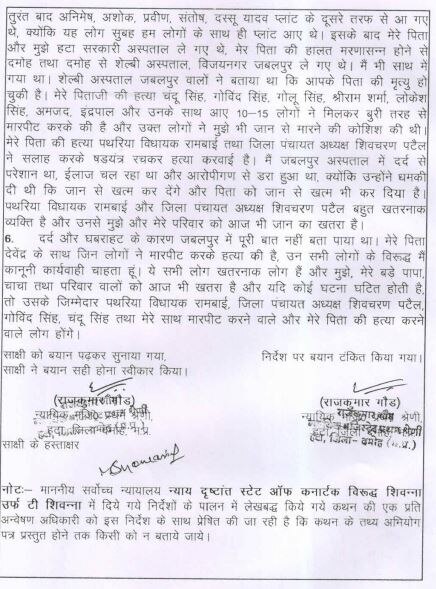 तुरंत बाद अनिमेष, अशोक, प्रवीण, संतोष, दस्सू यादव प्लांट के दूसरे तरफ से आ गए
थे, क्योंकि यह लोग सुबह हम लोगों के साथ ही प्लांट आए थे। इसके बाद मेरे पिता
और मुझे हटा सरकारी अस्पताल ले गए थे, मेरे पिता की हालत मरणासन्न होने से
दमोह तथा दमोह से शेल्बी अस्पताल, विजयनगर जबलपुर ले गए थे। मैं भी साथ में
गया था। शेल्बी अस्पताल जबलपुर वालों ने बताया था कि आपके पिता की मृत्यु हो
चुकी है। मेरे पिताजी की हत्या चंदू सिंह, गोविंद सिंह, गोलू सिंह, श्रीराम शर्मा, लोकेश
सिंह, अमजद, इंद्रपाल और उनके साथ आए 10–15 लोगों ने मिलकर बुरी तरह से
मारपीट करके की है और उक्त लोगों ने मुझे भी जान से मारने की कोशिश की थी।
मेरे पिता की हत्या पथरिया विधायक रामबाई तथा जिला पंचायत अध्यक्ष शिवचरण पटैल
ने सलाह करके षडयंत्र रचकर हत्या करवाई है। मैं जबलपुर अस्पताल में दर्द से
परेशान था, ईलाज चल रहा था और आरोपीगण से डरा हुआ था, क्योंकि उन्होंने धमकी
दी थी कि जान से खत्म कर देंगे और पिता को जान से खत्म भी कर दिया है।
पथरिया विधायक रामबाई और जिला पंचायत अध्यक्ष शिवचरण पटैल बहुत खतरनाक
व्यक्ति है और उनसे मुझे और मेरे परिवार को आज भी जान का खतरा है।
6. दर्द और घबराहट के कारण जबलपुर में पूरी बात नहीं बता पाया था। मेरे पिता
देवेंद्र के साथ जिन लोगों ने मारपीट करके हत्या की है, उन सभी लोगों के विरूद्ध मैं
कानूनी कार्यवाही चाहता हूं। ये सभी लोग खतरनाक लोग हैं और मुझे, मेरे बडे पापा,
चाचा तथा परिवार वालों को आज भी खतरा है और यदि कोई घटना घटित होती है,
तो उसके जिम्मेदार पथरिया विधायक रामबाई, जिला पंचायत अध्यक्ष शिवचरण पटैल,
गोविंद सिंह, चंदू सिंह तथा मेरे साथ मारपीट करने वाले और मेरे पिता की हत्या करने
वाले लोग होंगे।
साक्षी को बयान पढ़कर सुनाया गया, निर्देश पर बयान टंकित किया गया।
साक्षी ने बयान सही होना स्वीकार किया।
(राजकुमार गौंड) (राजकुमार गौंड)
न्यायिक प्रथम श्रेणी, न्यायिक श्रेणी,
हटा, जिला म.प्र. हटा, जिला- दमोह (म.प्र.)
साक्षी के हस्ताक्षर
नोटः– माननीय सर्वोच्च न्यायालय न्याय दृष्टांत स्टेट ऑफ कनार्टक विरूद्ध शिवन्ना
उर्फ टी शिवन्ना में दिये गये निर्देशों के पालन में लेखबद्ध किये गये कथन की एक प्रति
अन्वेषण अधिकारी को इस निर्देश के साथ प्रेषित की जा रही है कि कथन के तथ्य अभियोग
पत्र प्रस्तुत होने तक किसी को न बताये जाये।